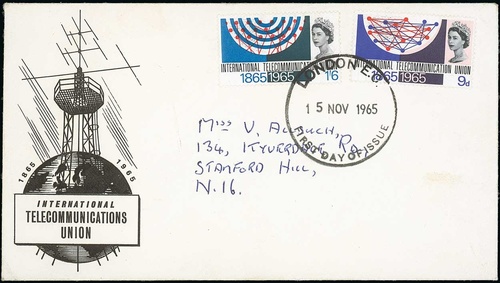 INTERNATIONAL TELECOMMUNICATION UNION
1865 1965 1/6
INTERNATIONAL TELECOMMUNICATION UNION
1865 1965 9d
LONDON E.C.
15 NOV 1965
FIRST DAY OF ISSUE
Miss V.
134, Rd,
STAMFORD HILL,
N.16.
1865 1965
INTERNATIONAL
TELECOMMUNICATIONS
UNION